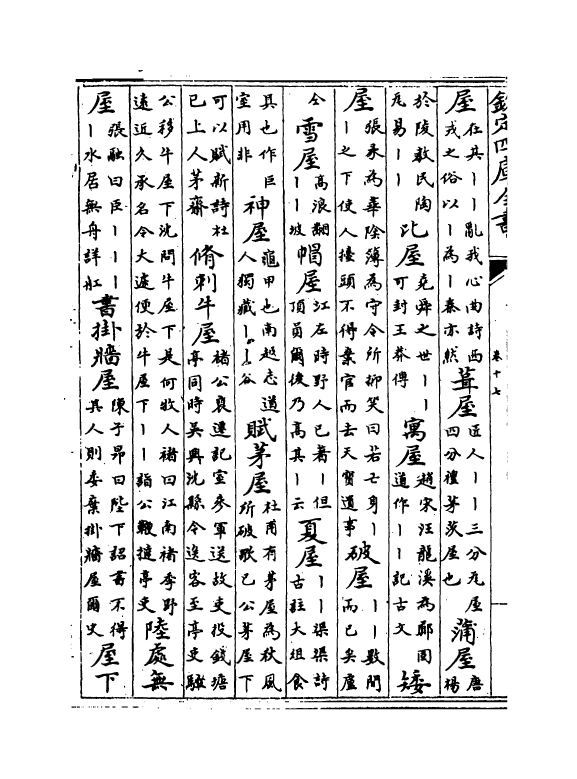 欽定四庫全書
卷十七
屋在其丨丨亂我心曲詩西戎之俗以丨為丨秦亦然葺屋匠人丨丨三分瓦屋四分禮茅茨屋也蒲屋唐楊
於陵教民陶瓦易丨丨比屋堯舜之世丨丨可封王莽傳寓屋趙宋汪龍溪為道作丨丨記古文矮
屋張彖為華陰簿為守令所抑笑曰若亡身丨丨之下使人擡頭不得棄官而去天寶遺事破屋丨丨數間而已矣盧
仝雪屋高浪翻丨丨坡帽屋江左時野人已著丨但頂員爾後乃高其丨云夏屋丨丨渠渠詩古註大俎食
具也作巨室用非神屋龜甲也南越志道人獨藏丨丨谷賦茅屋杜甫有茅屋為秋風所破歌已公茅屋下
可以賦新詩杜已上人茅齋脩刺牛屋褚公裒遷記室參軍送故吏投錢塘亭同時吳興沈縣令逡客至亭吏驅
公移牛屋下沈問牛屋下是何收人褚曰江南褚季野遠近久承名令大遽便於牛屋下丨丨詣公鞭撻亭吏陸處無
屋張融曰臣丨丨丨丨水居無舟詳舡書掛牆屋陳子昂曰陛下詔書不得其人則委棄掛牆屋爾史屋下